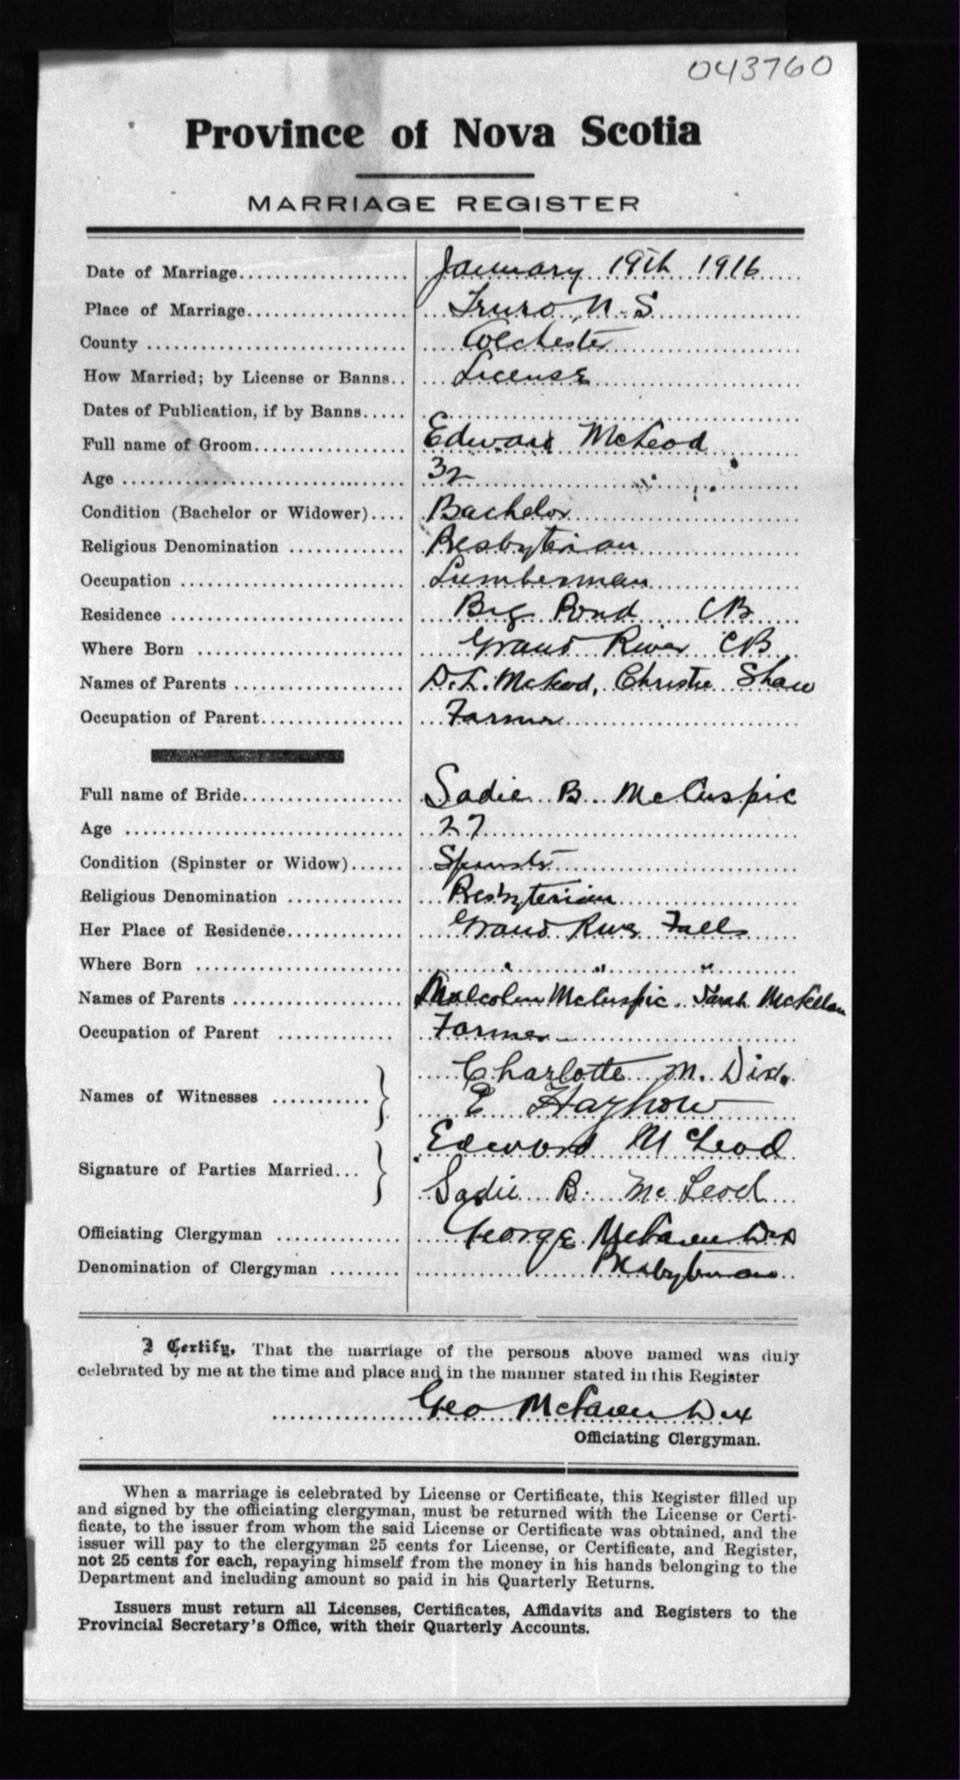 043760
Province of Nova Scotia
MARRIAGE REGISTER
Date of Marriage January 19th 1916
Place of Marriage Truro N.S
County Colchester
How Married; by License or Banns License
Dates of Publication, if by Banns
Full name of Groom Edward McLeod
Age 32
Condition (Bachelor or Widower) Bachelor
Religious Denomination Presbyterian
Occupation Lumberman
Residence Big Pond CB
Where Born Grand River CB
Names of Parents D. L. McLeod, Christie Shaw
Occupation of Parent Farmer
Full name of Bride Sadie B. McCuspic
Age 27
Condition (Spinster or Widow) Spinster
Religious Denomination Presbyterian
Her Place of Residence Grand River Falls
Where Born " " "
Names of Parents Malcolm McCuspic. Sarah
Occupation of Parent Farmer
Names of Witnesses Charlotte M. Dix.
E Hayhow
Signature of Parties Married Edward McLeod
Sadie B. McLeod
Officiating Clergyman George Dix
Denomination of Clergyman Presbyterian
I Certify, That the marriage of the persons above named was duly
celebrated by me at the time and place and in the manner stated in this Register
Geo Dix
Officiating Clergyman.
When a marriage is celebrated by License or Certificate, this Register filled up
and signed by the officiating clergyman, must be returned with the License or Certi-
ficate, to the issuer from whom the said License or Certificate was obtained, and the
issuer will pay to the clergyman 25 cents for License, or Certificate, and Register,
not 25 cents for each, repaying himself from the money in his hands belonging to the
Department and including amount so paid in his Quarterly Returns.
Issuers must return all Licenses, Certificates, Affidavits and Registers to the
Provincial Secretary's Office, with their Quarterly Accounts.